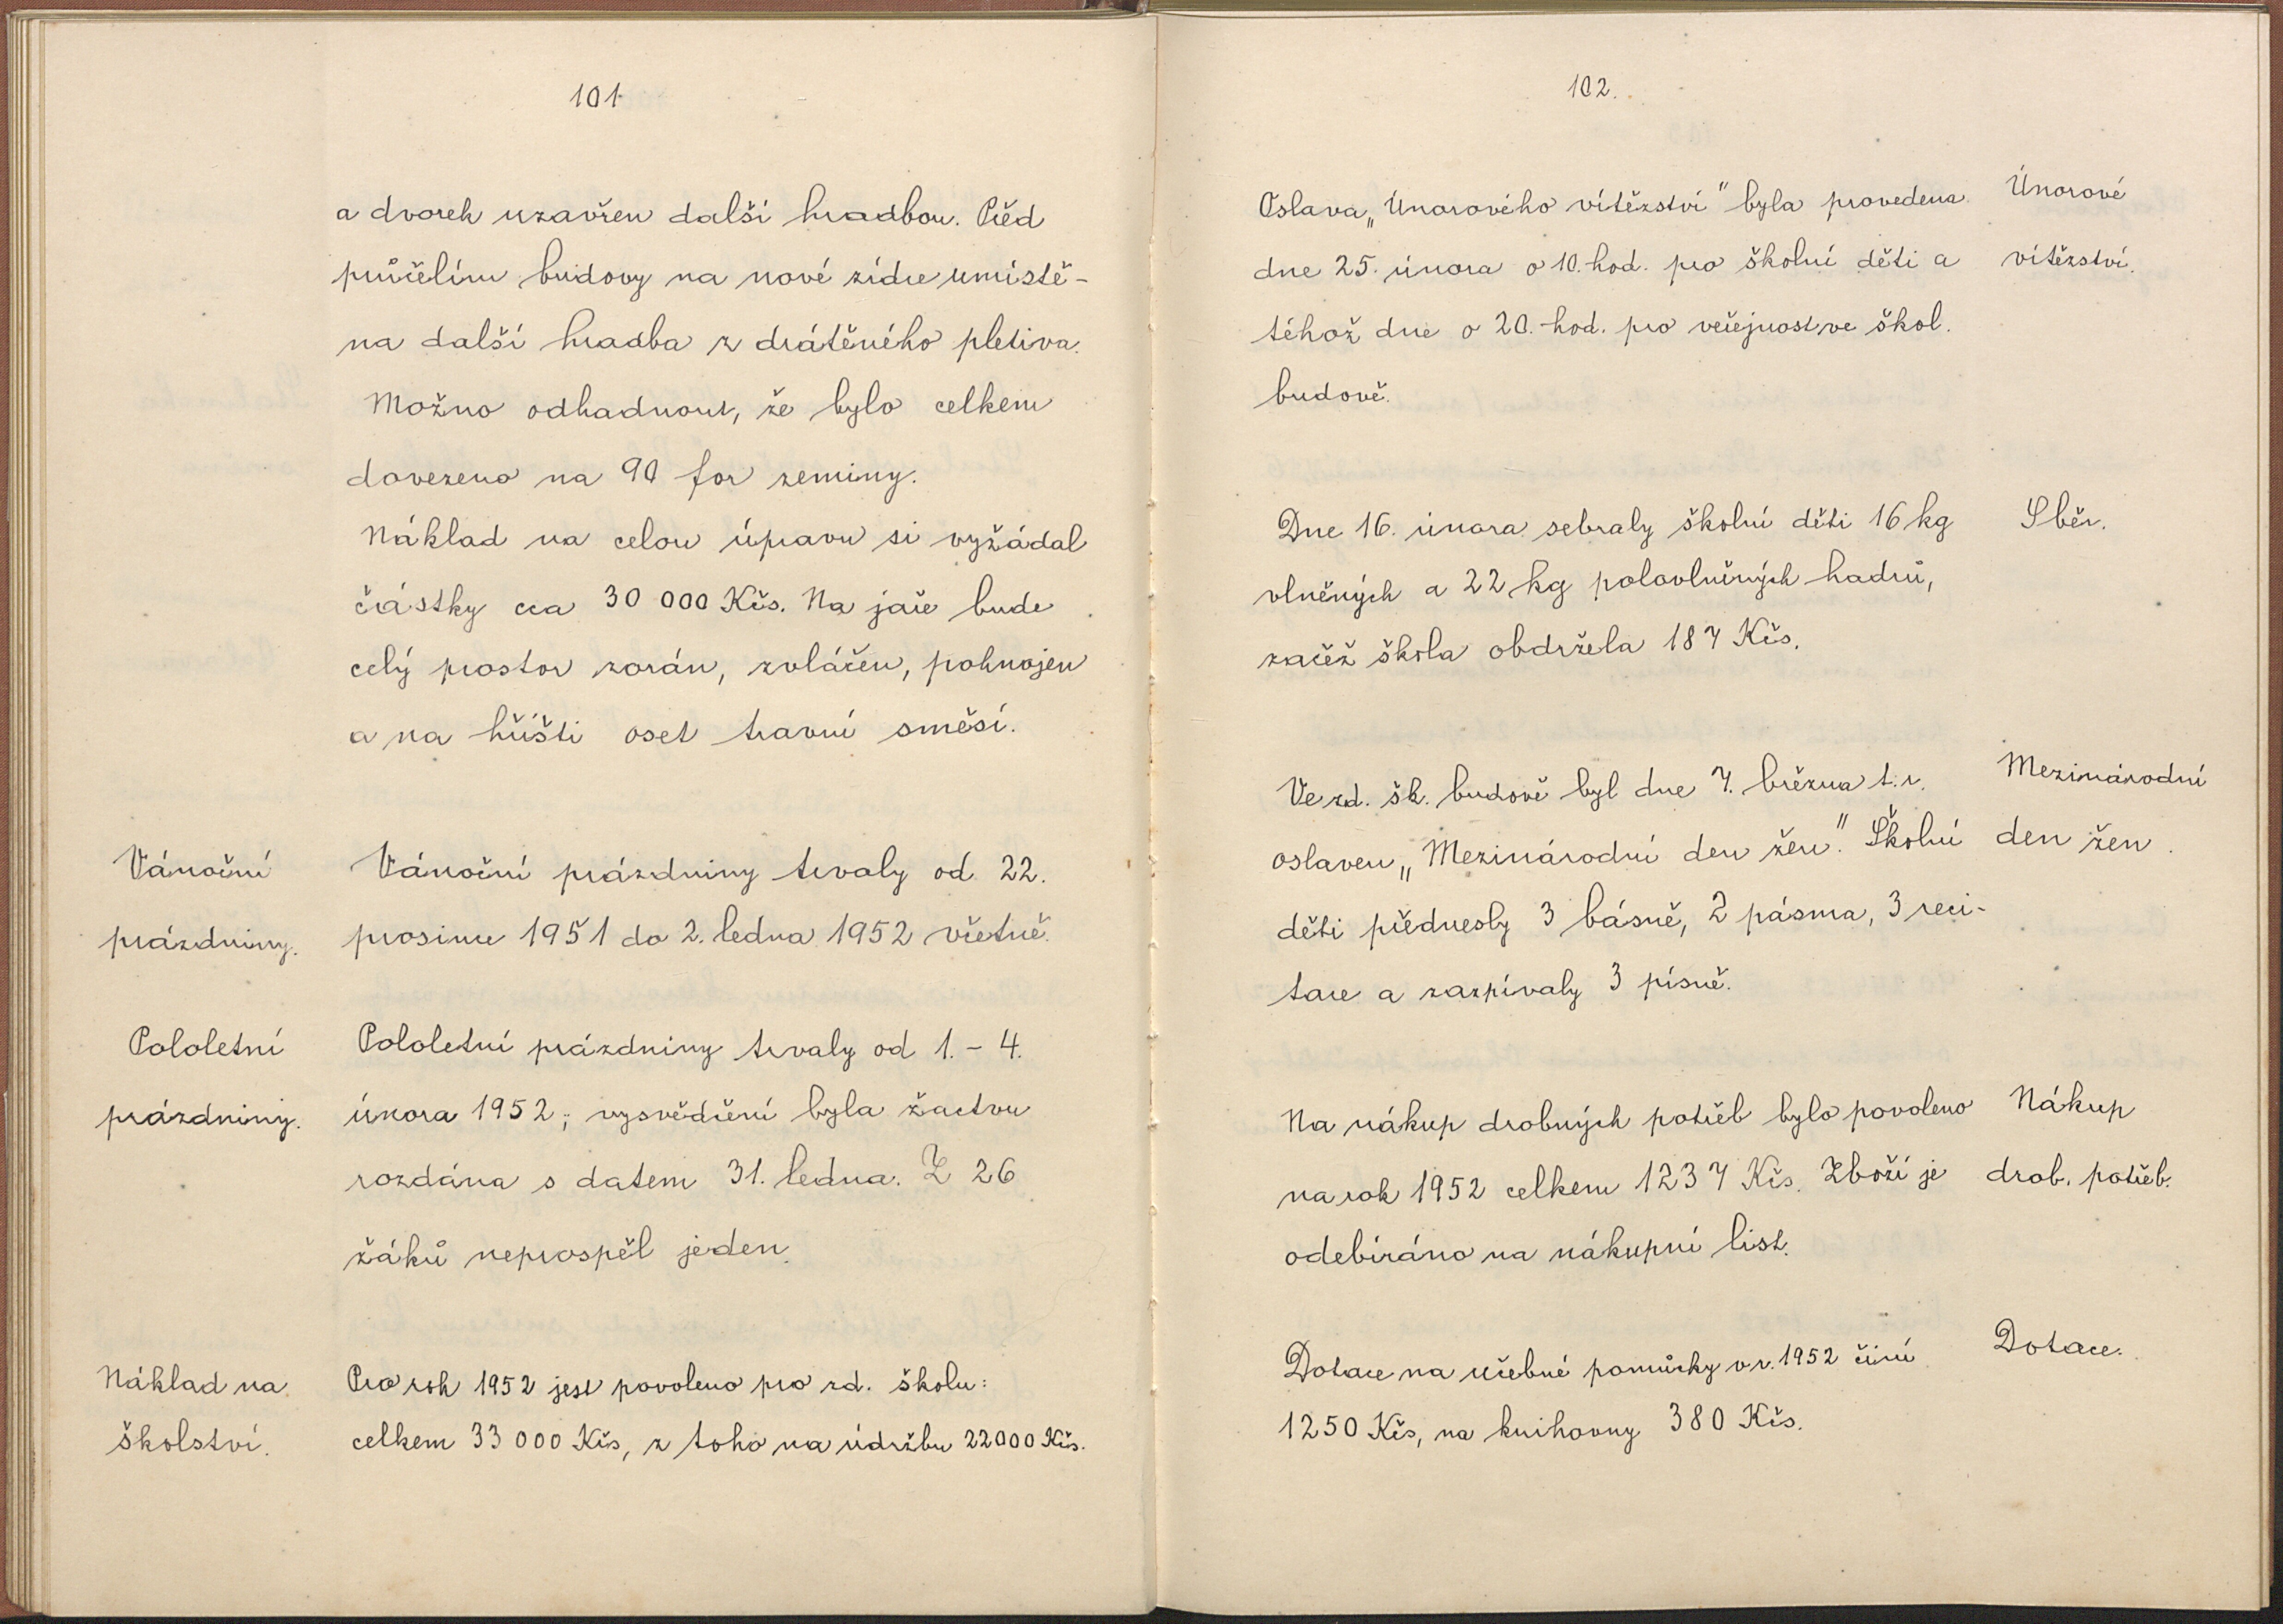 101
a dvorek uzavřen další hradbou. Před
průčelím budovy na nové zídce umístě-
na další hradba z drátěného pletiva.
Možno odhadnout, že bylo celkem
dovezeno na 90 for zeminy.
Náklad na celou úpravu si vyžádal
částky cca 30 000 Kčs. Na jaře bude
celý prostor zorán, zvláčen, pohnojen
a na hřišti oset travní směsí.
Vánoční
prázdniny.
Vánoční prázdniny trvaly od 22.
prosince 1951 do 2. ledna 1952 včetně.
Pololetní
prázdniny.
Pololetní prázdniny trvaly od 1. - 4.
února 1952; vysvědčení byla žactvu
rozdána s datem 31. ledna. Z 26
žáků neprospěl jeden.
Náklad na
školství.
Pro rok 1952 jest povoleno pro zd. školu:
celkem 33 000 Kčs, z toho na údržbu 22000 Kčs.
102.
Oslava „Únorového vítězství" byla provedena
dne 25. února o 10. hod. pro školní děti a
téhož dne o 20. hod. pro veřejnost ve škol.
budově.
Únorové
vítězství.
Dne 16. února sebraly školní děti 16 kg
vlněných a 22 kg polovlněných hadrů,
začež škola obdržela 187 Kčs.
Sběr.
Ve zd. šk. budově byl dne 7. března t. r.
oslaven „Mezinárodní den žen". Školní
děti přednesly 3 básně, 2 pásma, 3 reci-
tace a zazpívaly 3 písně.
Mezinárodní
den žen.
Na nákup drobných potřeb bylo povoleno
na rok 1952 celkem 1237 Kčs. Zboží je
odebíráno na nákupní list.
Nákup
drob. potřeb.
Dotace na učebné pomůcky v r. 1952 činí
1250 Kčs, na knihovny 380 Kčs.
Dotace.